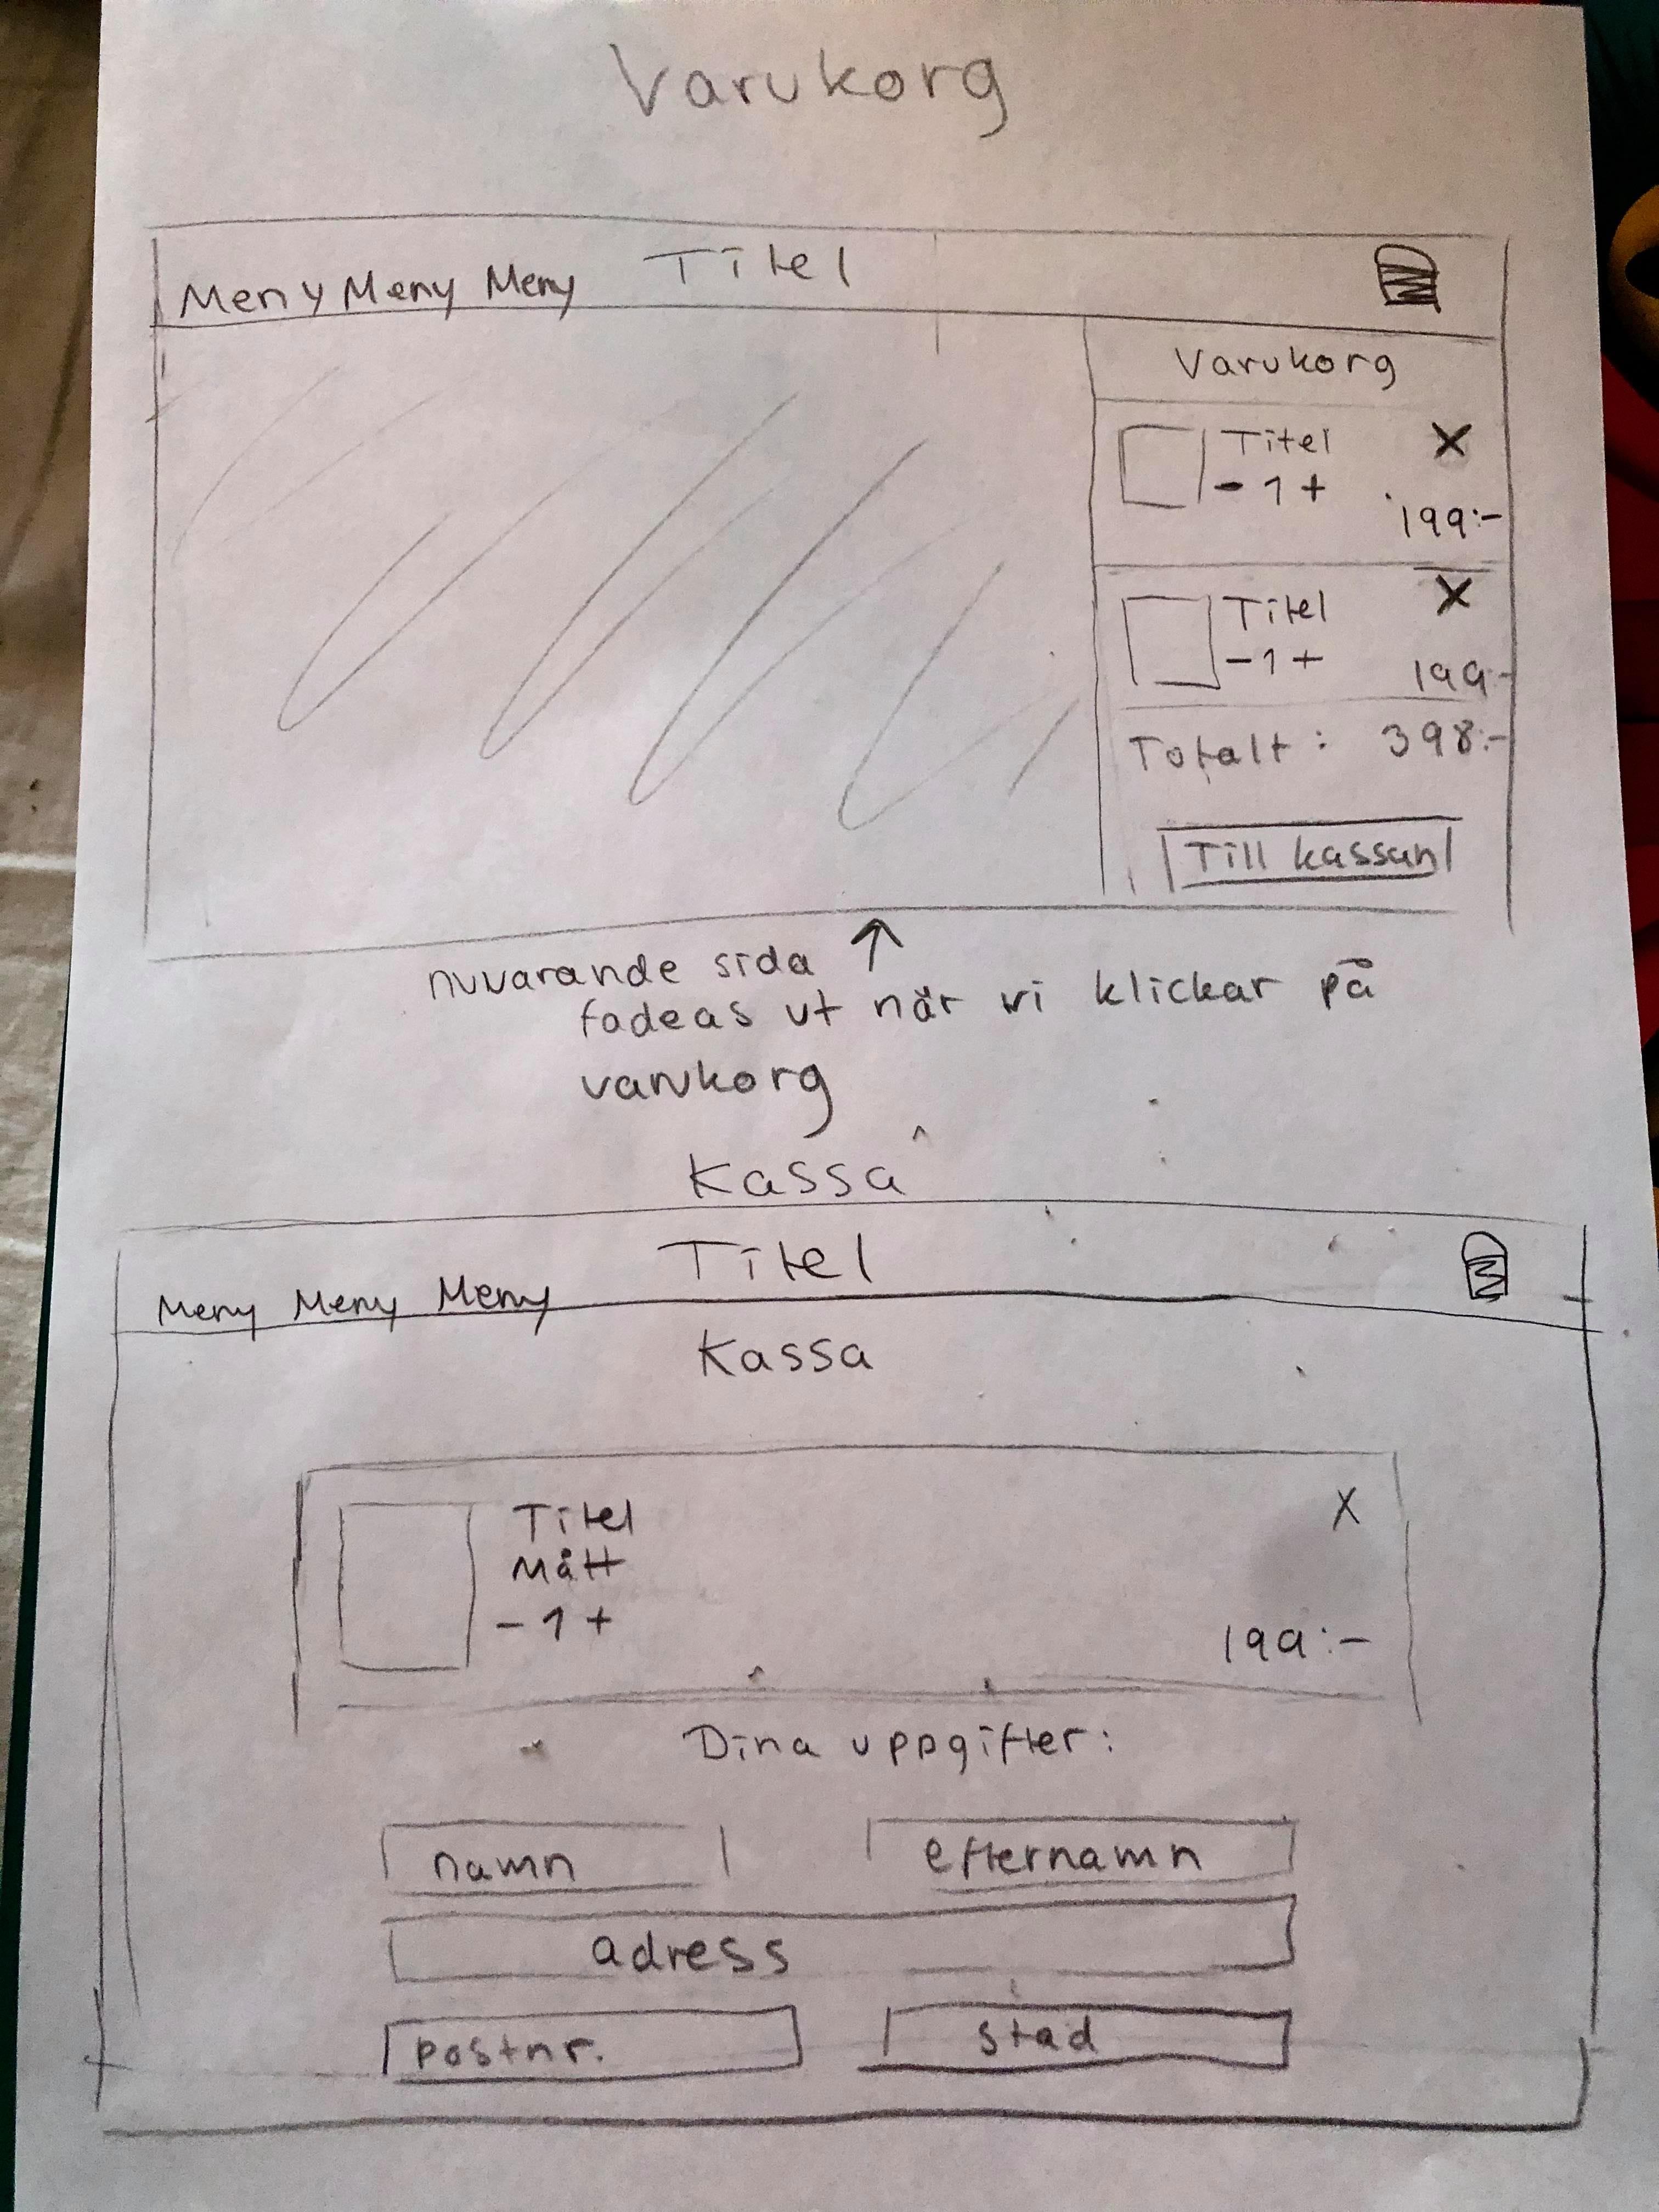 Varukorg
Meny Meny Meny Titel
Varukorg
Titel X
- 1 +
199:-
Titel X
- 1 +
199:-
Totalt: 398:-
Till kassan
nuvarande sida ↑
fadeas ut när vi klickar på
varukorg
Kassa
Titel
Meny Meny Meny
Kassa
Titel X
Mått
- 1 +
199:-
Dina uppgifter:
namn efternamn
adress
postnr. stad